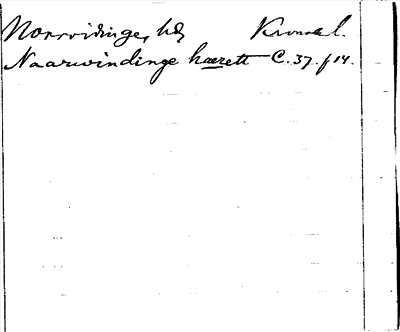 Norrvidinge, hd, Kronobl.
Naarwindinge haerett C. 37. f 14.